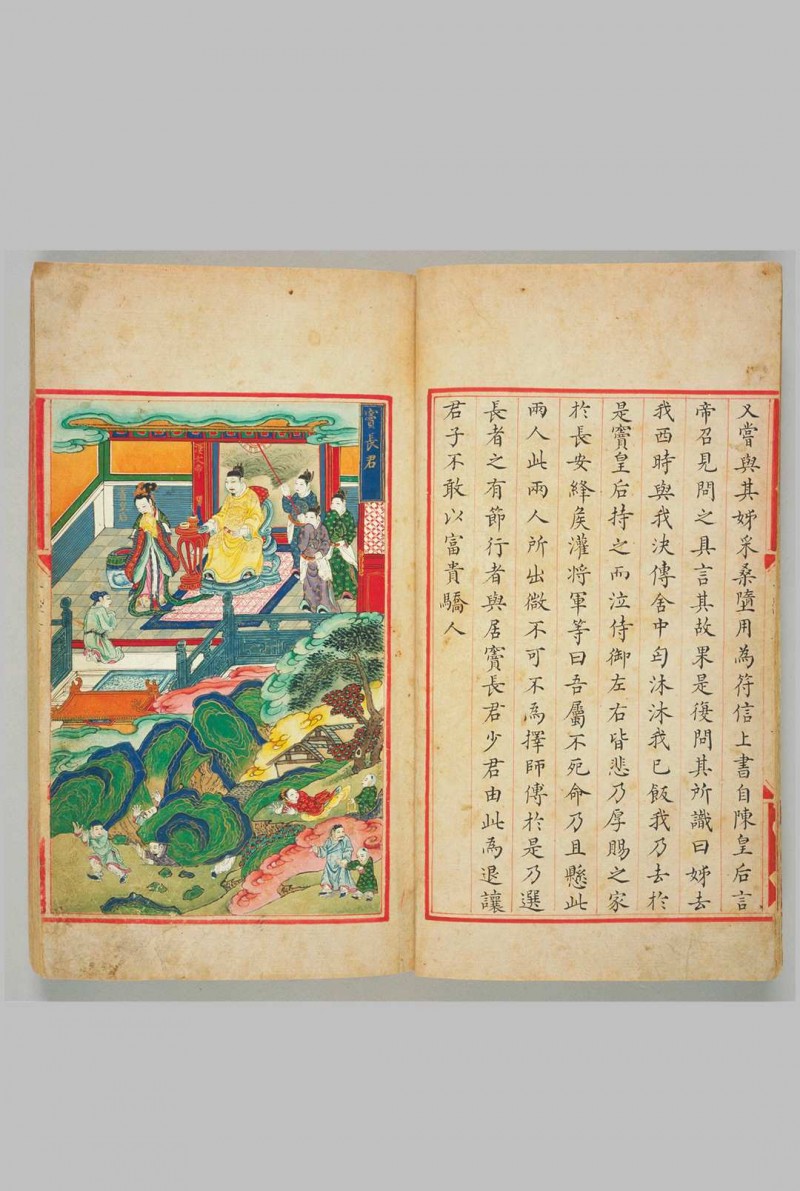 又嘗與其姊采桑墮用為符信上書自陳皇后言
帝召見問之具言其故果是復問其所識曰姊去
我西時與我決傳舍中匄沐沐我已飯我乃去於
是竇皇后持之而泣侍御左右皆悲乃厚賜之家
於長安絳侯灌將軍等曰吾屬不死命乃且懸此
兩人此兩人所出微不可不為擇師傅於是乃選
長者之有節行者與居竇長君少君由此為退讓
君子不敢以富貴驕人
竇長君
漢文帝